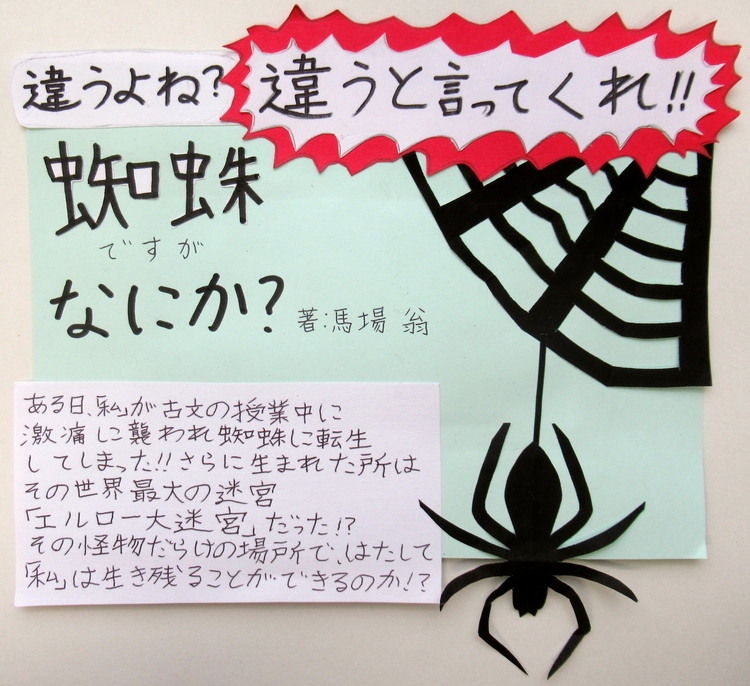 違うよね?
違うと言ってくれ!!
蜘蛛
ですが
なにか?
著:馬場 翁
ある日、「私」が古文の授業中に
激痛に襲われ蜘蛛に転生
してしまった!!さらに生まれた所は
その世界最大の迷宮
「エルロー大迷宮」だった!?
その怪物だらけの場所で、はたして
「私」は生き残ることができるのか!?